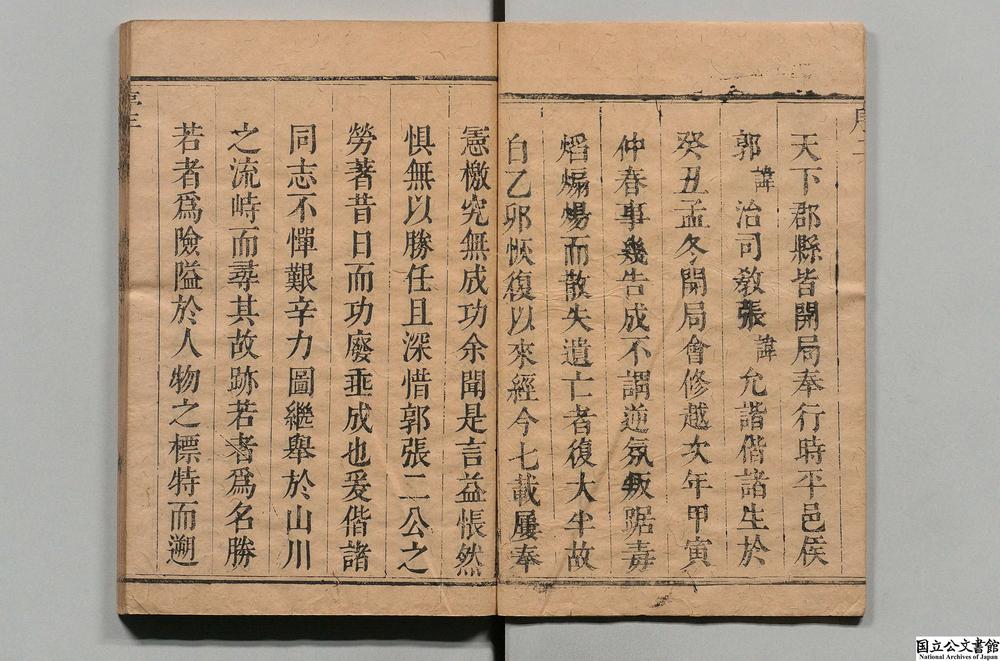 序二
天下郡縣皆開局奉行時平邑侯
郭諱治司敎張諱允諧偕諸生於
癸丑孟冬開局會修越次年甲寅
仲春事幾告成不謂逆氛叛踞毒
熖煽惕而散失遺亡者復大半故
自乙卯恢復以來經今七載屢奉
憲檄究無成功余聞是言益悵然
惧無以勝任且深惜郭張二公之
勞著昔日而功廢垂成也爰偕諸
同志不憚艱辛力圖繼舉於山川
之流峙而尋其故跡若者爲名勝
若者爲險隘於人物之標特而遡
国立公文書館
National Archives of Japan